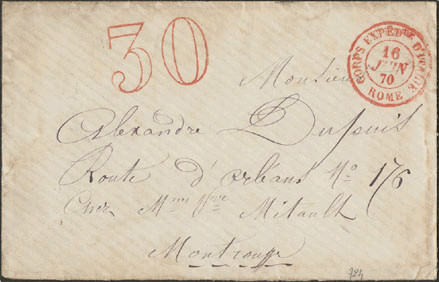 30
CORPS EXPÉD.RE D'ITALIE
16
JUIN
70
ROME
Monsieur
Alexandre Dupuis
Route d'orléans No 176
Chez Mme Vve Mitault
Montrouge